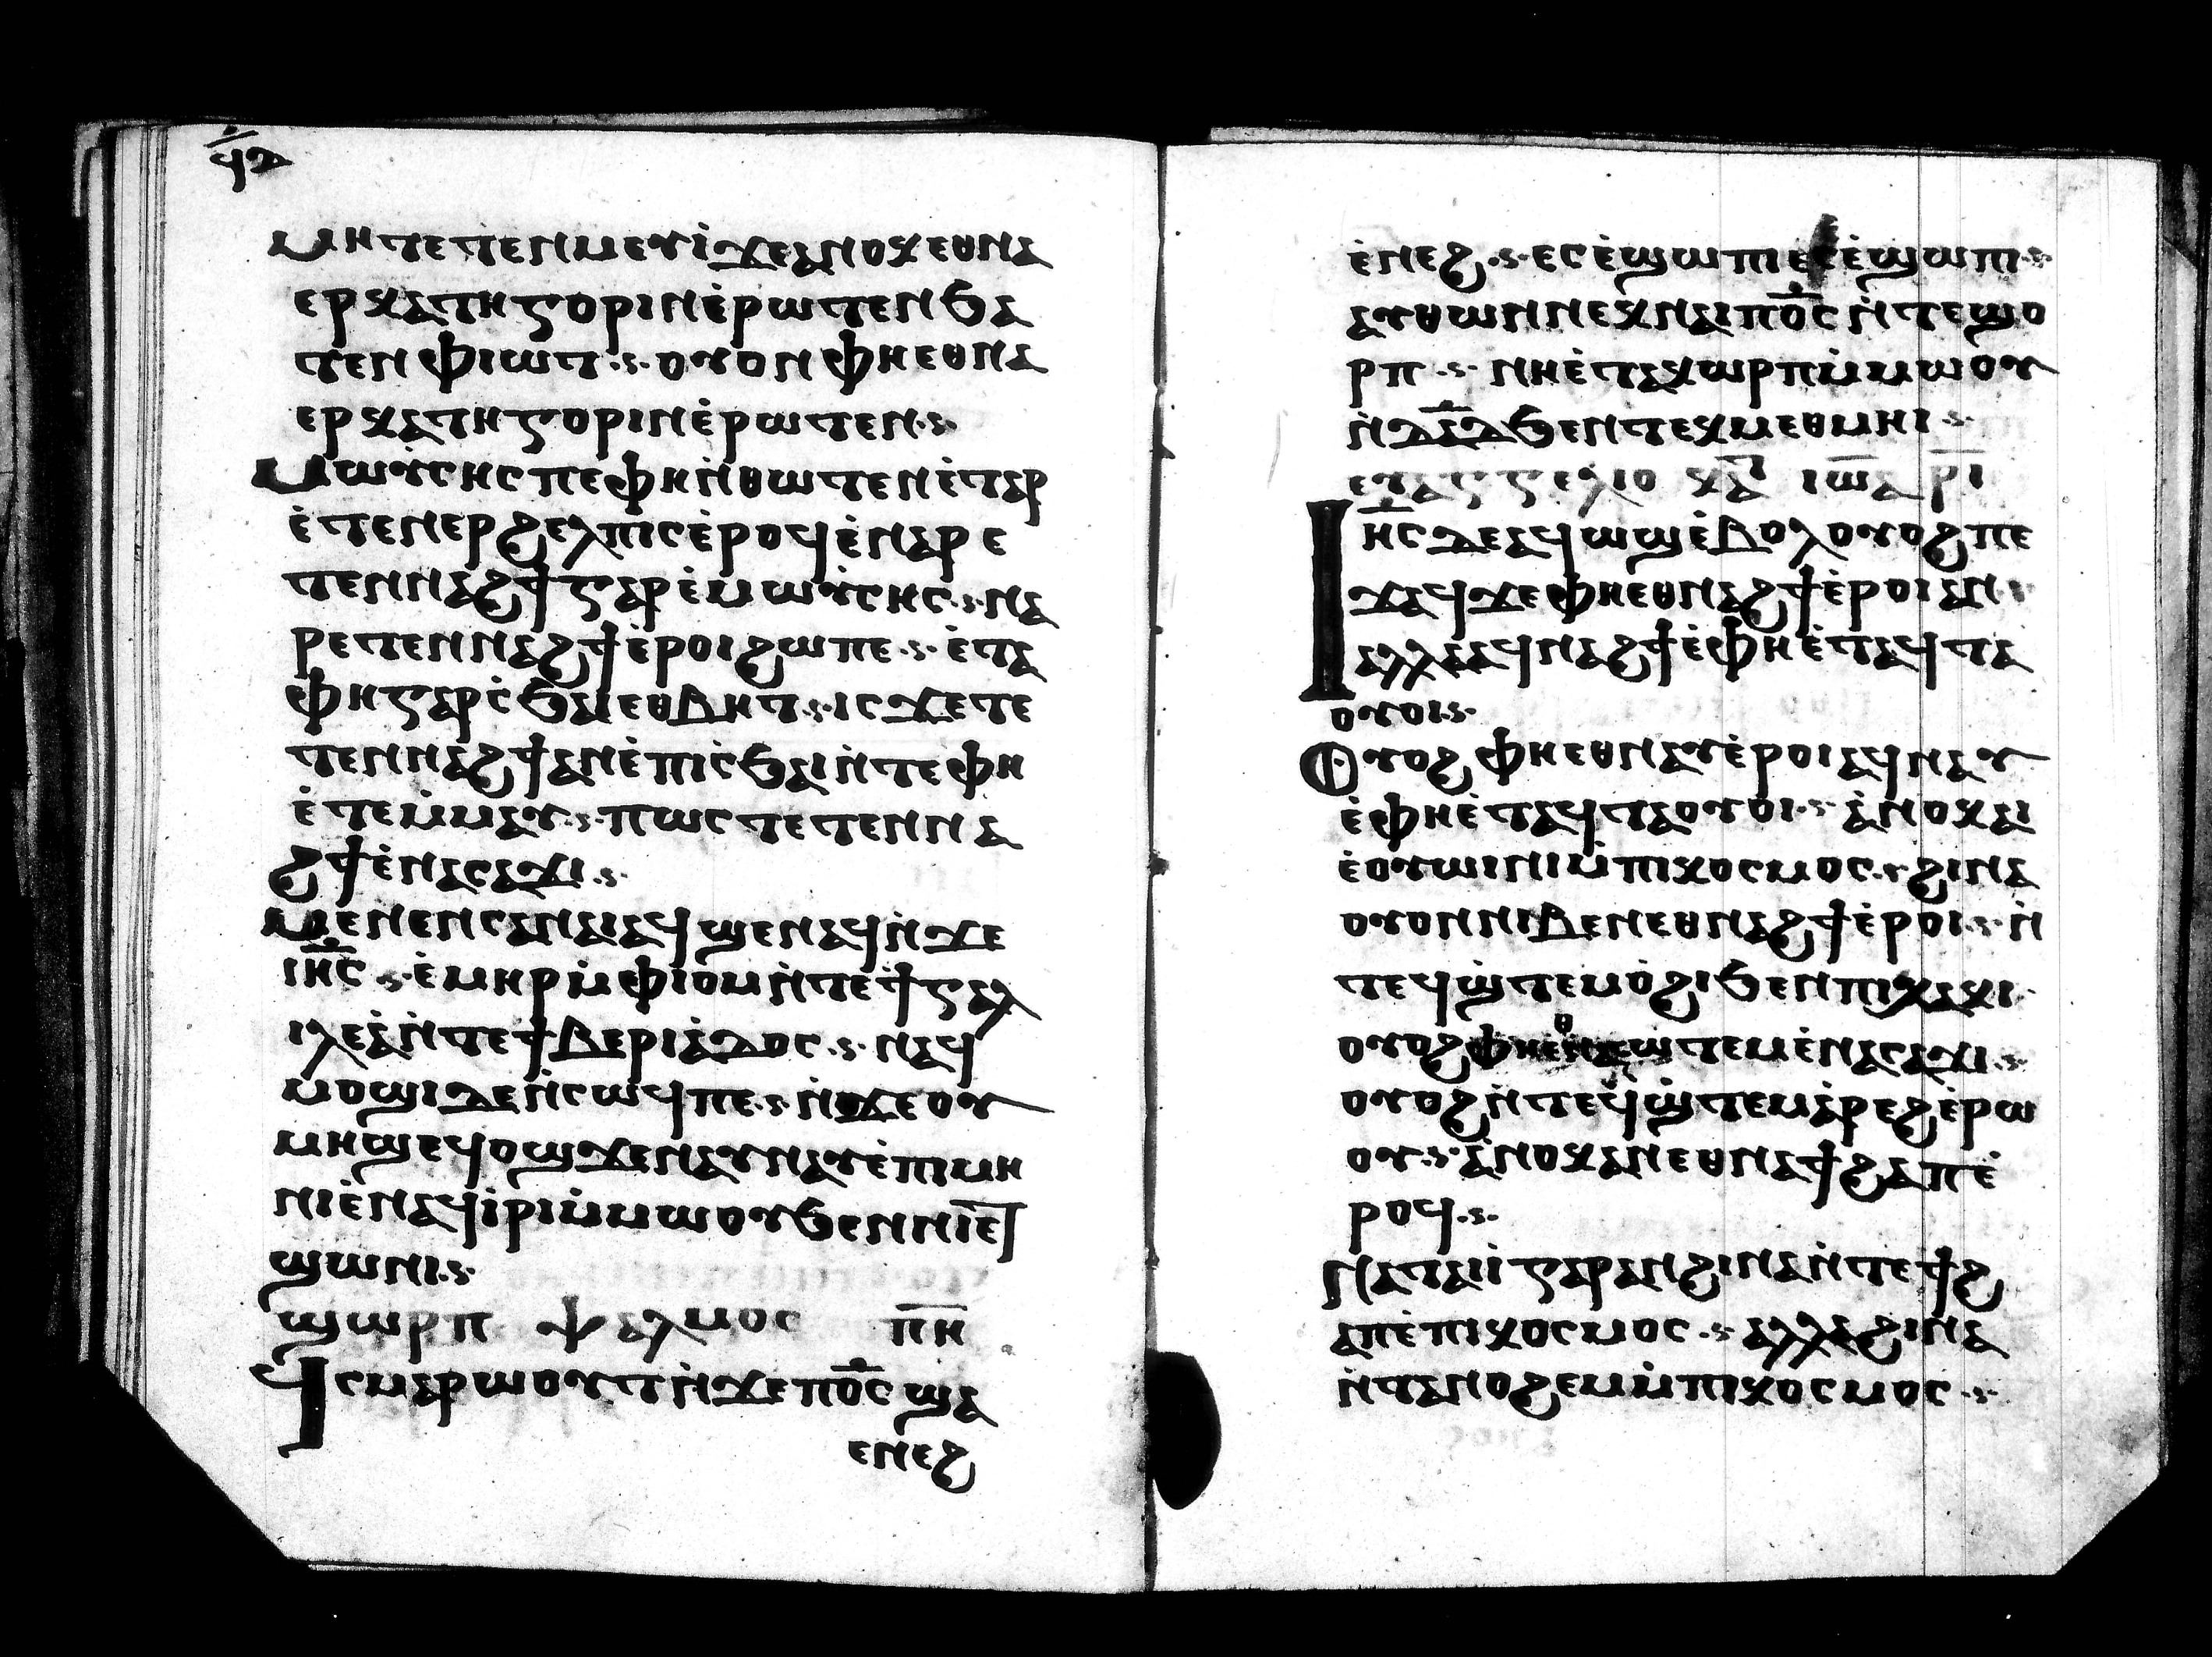 ϥⲇ
ⲙⲏⲧⲉⲧⲉⲛⲙⲉⲩⲓ̀ϫⲉⲁⲛⲟⲕⲉⲑⲛⲁ
ⲉⲣⲕⲁⲧⲏⲅⲟⲣⲓⲛⲉ̀ⲣⲱⲧⲉⲛϧⲁ
ⲧⲉⲛⲫⲓⲱⲧ·ⲟⲩⲟⲛⲫⲏⲉⲑⲛⲁ
ⲉⲣⲕⲁⲧⲏⲅⲟⲣⲓⲛⲉ̀ⲣⲱⲧⲉⲛ·
ⲙⲱⲩ̀ⲥⲏⲥⲡⲉⲫⲏⲛ̀ⲑⲱⲧⲉⲛⲉ̀ⲧⲁⲣ
ⲉ̀ⲧⲉⲛⲉⲣϩⲉⲗⲡⲓⲥⲉ̀ⲣⲟϥⲉ̀ⲛⲁⲣⲉ
ⲧⲉⲛⲛⲁϩϯⲅⲁⲣⲉ̀ⲙⲱⲩ̀ⲥⲏⲥ·ⲛⲁ
ⲣⲉⲧⲉⲛⲛⲁϩϯⲉ̀ⲣⲟⲓϩⲱⲡⲉ·ⲉ̀ⲧⲁ
ⲫⲏⲅⲁⲣⲥ̀ϧⲁⲓⲉⲑⲃⲏⲧ·ⲓⲥϫⲉⲧⲉ
ⲧⲉⲛⲛⲁϩϯⲁⲛⲉ̀ⲡⲓⲥ̀ϧⲁⲓⲛ̀ⲧⲉⲫⲏ
ⲉ̀ⲧⲉⲙ̀ⲙⲁⲩ·ⲡⲱⲥⲧⲉⲧⲉⲛⲛⲁ
ϩϯⲉ̀ⲛⲁⲥⲁϫⲓ·
ⲙⲉⲛⲉⲛⲥⲁⲛⲁⲓⲁϥϣⲉⲛⲁϥⲛ̀ϫⲉ
ⲓⲏ̅ⲥ̅·ⲉ̀ⲙⲏⲣⲙ̀ⲫⲓⲟⲙⲛ̀ⲧⲉϯⲅⲁⲗ
ⲓⲗⲉⲁ̀ⲛ̀ⲧⲉϯⲃⲉⲣⲓⲁ̀ⲇⲟⲥ·ⲛⲁϥ
ⲙⲟϣⲓⲇⲉⲛ̀ⲥⲱϥⲡⲉ·ⲛ̀ϫⲉⲟⲩ
ⲙⲏϣⲉϥⲟϣϫⲉⲛⲁⲩⲛⲁⲩⲉ̀ⲡⲓⲙⲏ
ⲛⲓⲉ̀ⲛⲁϥⲓ̀ⲣⲓⲙ̀ⲙⲱⲟⲩϧⲉⲛⲛⲓⲉⲧ
ϣⲱⲛⲓ·
ϣⲱⲣⲡ ⲯⲁⲗⲙⲟⲥ ⲡ̅ⲏ̅
ϥ̀ⲥⲙⲁⲣⲱⲟⲩⲧⲛ̀ϫⲉⲡⲟ̅ⲥ̅ϣⲁ
ⲉⲛⲉϩ
ⲉ̀ⲛⲉϩ·ⲉⲥⲉ̀ϣⲱⲡⲓⲉⲥⲉ̀ϣⲱⲡⲓ·
ⲁⲩⲑⲱⲛⲛⲉⲕⲛⲁⲓⲡⲟ̅ⲥ̅ⲛ̀ⲧⲉϣⲟ
ⲣⲡ·ⲛⲏⲉ̀ⲧⲁⲕⲱⲣⲡⲙ̀ⲙⲱⲟⲩ
ⲛ̀ⲇ̅ⲁ̅ⲇ̅ϧⲉⲛⲧⲉⲕⲙⲉⲑⲙⲏⲓ·
ⲉⲩⲁⲅⲅⲉⲗⲓⲟ ⲕⲁ̅ⲧ̅ ⲓⲱ̅ⲁ ⲣ̅ⲓ̅
ⲓⲏ̅ⲥ̅ⲇⲉⲁϥⲱϣⲉ̀ⲃⲟⲗⲟⲩⲟϩⲡⲉ
ϫⲁϥϫⲉⲫⲏⲉⲑⲛⲁϩϯⲉ̀ⲣⲟⲓⲁⲛ·
ⲁⲗⲗⲁⲁϥⲛⲁϩϯⲉ̀ⲫⲏⲉ̀ⲧⲁϥⲧⲁ
ⲟⲩⲟⲓ·
ⲟⲩⲟϩⲫⲏⲉⲑⲛⲁⲩⲉ̀ⲣⲟⲓⲁϥⲛⲁⲩ
ⲉ̀ⲫⲏⲉ̀ⲧⲁϥⲧⲁⲟⲩⲟⲓ·ⲁ̀ⲛⲟⲕⲁⲓ
ⲉ̀ⲟⲩⲱⲓⲛⲓⲙ̀ⲡⲓⲕⲟⲥⲙⲟⲥ·ϩⲓⲛⲁ
ⲟⲩⲟⲛⲛⲓⲃⲉⲛⲉⲑⲛⲁϩϯⲉ̀ⲣⲟⲓ·ⲛ̀
ⲧⲉϥϣ̀ⲧⲉⲙⲟ̀ϩⲓϧⲉⲛⲡⲓⲭⲁⲕⲓ·
ⲟⲩⲟϩⲫⲏⲉⲑⲛⲁⲥⲱⲧⲉⲙⲉ̀ⲛⲁⲥⲁϫⲓ·
ⲟⲩⲟϩⲛ̀ⲧⲉϥϣ̀ⲧⲉⲙⲁ̀ⲣⲉϩⲉ̀ⲣⲱ
ⲟⲩ·ⲁ̀ⲛⲟⲕⲁⲛⲉⲑⲛⲁϯϩⲁⲡⲉ̀
ⲣⲟϥ·
ⲛⲁⲧⲁⲓⲓ̀ⲅⲁⲣⲁⲛϩⲓⲛⲁⲛ̀ⲧⲉϯϩ
ⲁⲡⲉ̀ⲡⲓⲕⲟⲥⲙⲟⲥ·ⲁⲗⲗⲁϩⲓⲛⲁ
ⲛ̀ⲧⲁⲛⲟϩⲉⲙⲙ̀ⲡⲓⲕⲟⲥⲙⲟⲥ·